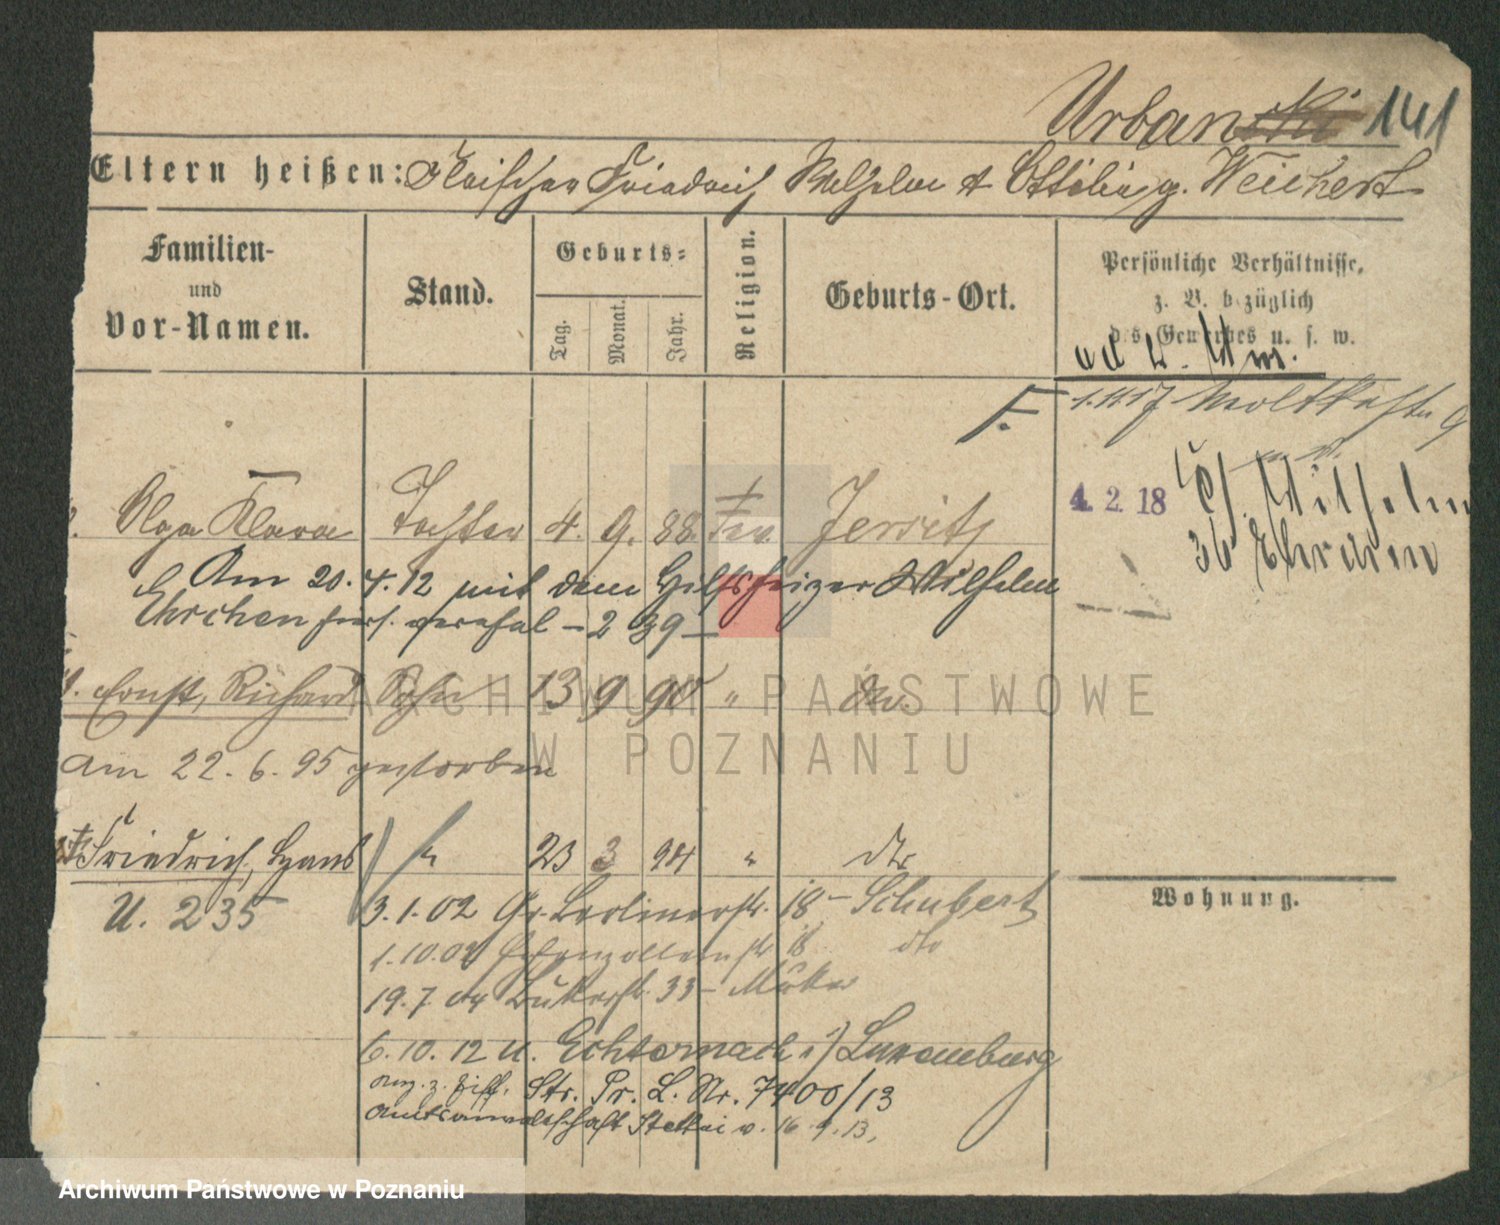 Urbanski 141
Eltern heißen: Fleischer Friedrich Wilhelm & Ottilie g. Weichert
Familien-
und
Vor-Namen.
Stand.
Geburts-
Tag.
Monat.
Jahr.
Religion.
Geburts-Ort.
Persönliche Verhältnisse,
z. B. bezüglich
des Gewerbes u. s. w.
F.
1.11.17 Moltkestr 9
4. 2. 18
Wilhelm
Olga Klara Tochter 4. 9. 88. ev. Jersitz
Am 20. 4. 12 mit dem Hilfsheizer Wilhelm
Ehrchen hiers. vereh. – 2 39 –
Ernst, Richard Sohn 13 9 90 " do.
am 22. 6. 95 gestorben
Friedrich, Hans " 23 3 94 " dto
U. 235
3.1.02 Gr. Berlinerstr. 18 – Schubert
1.10.02 Hohenzollernstr 18 dto
19.7.04 Bukerstr. 33 –
6.10.12 u. Echternach i/ Luxemburg
Str. Pr. L. Nr. 7400/13
Amtsanwaltschaft Stettin v. 16.9.13.
Wohnung.
ARCHIWUM PAŃSTWOWE
W POZNANIU
Archiwum Państwowe w Poznaniu